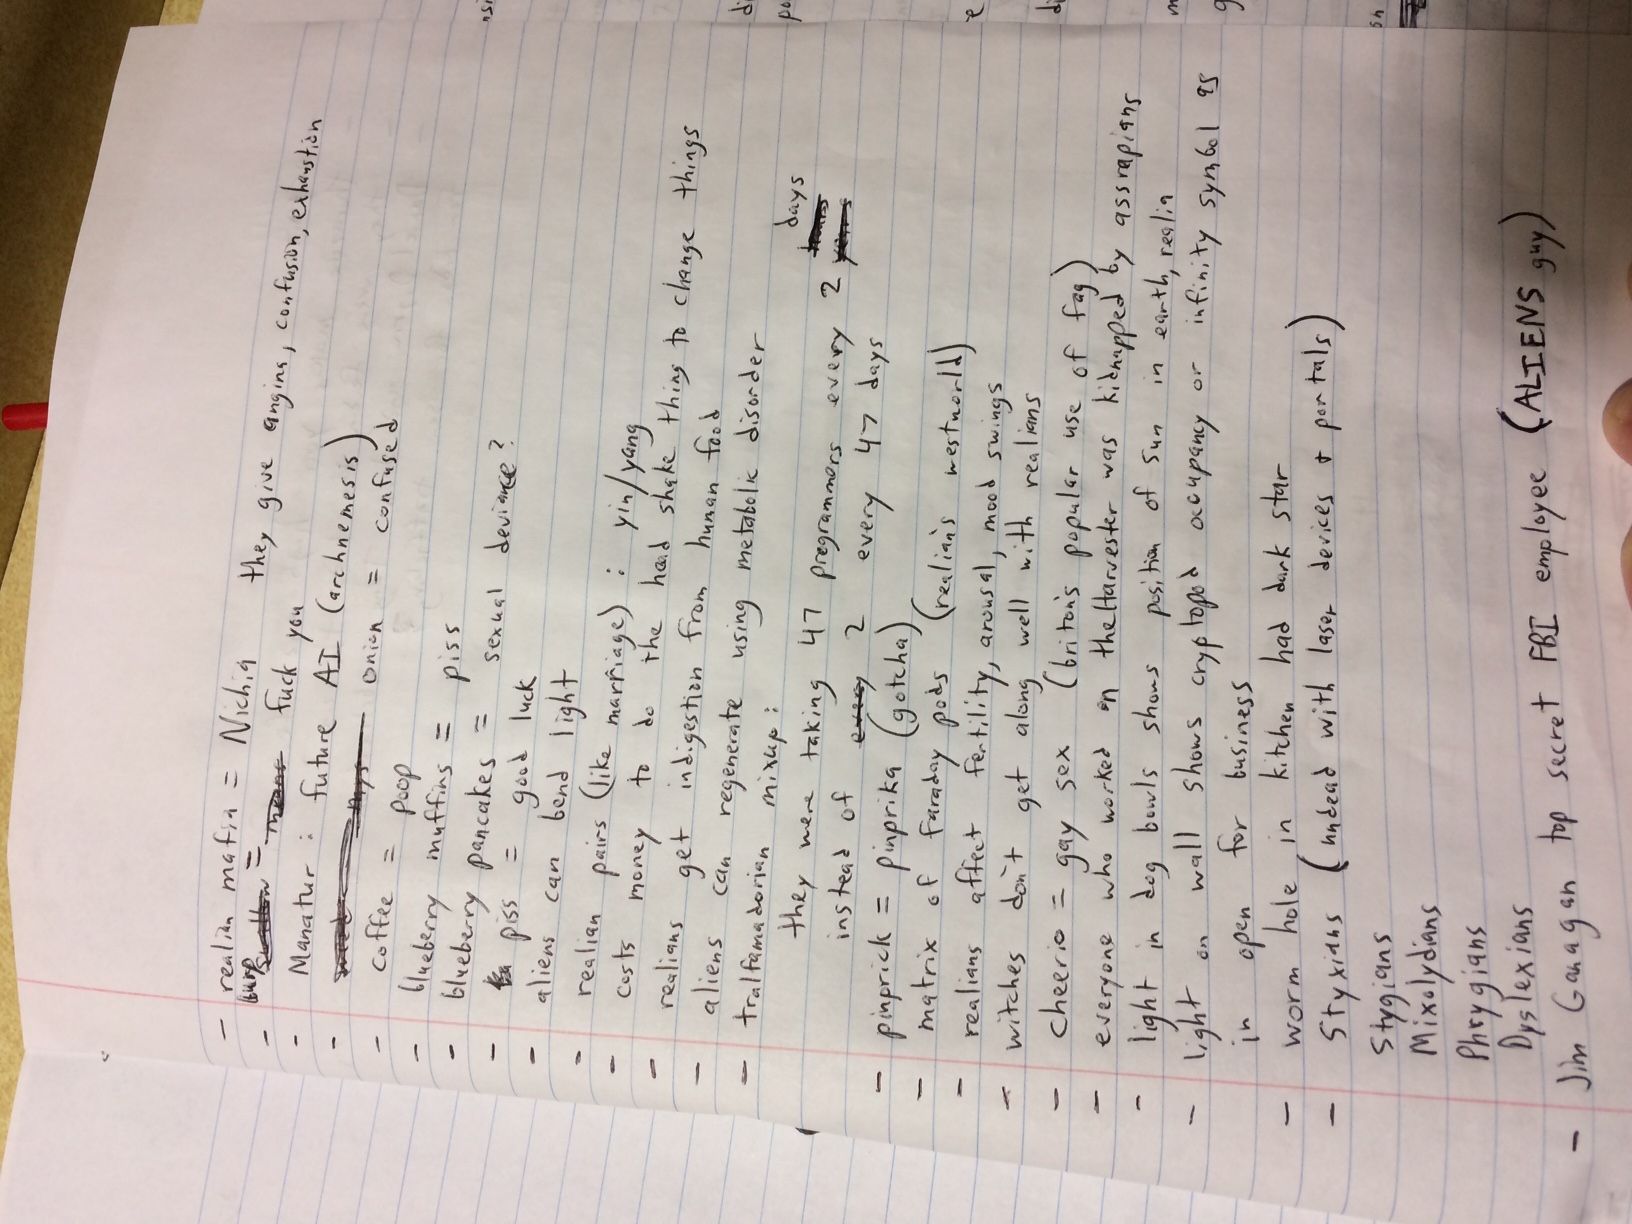 - realian mafia = Nichia they give angina, confusion, exhaustion
- burp = fuck you
- Manatur : future AI (archnemesis)
- onion = confused
- coffee = poop
- blueberry muffins = piss
- blueberry pancakes = sexual deviance?
- piss = good luck
- aliens can bend light
- realian pairs (like marriage) : yin/yang
- costs money to do the head shake thing to change things
- realians get indigestion from human food
- aliens can regenerate using metabolic disorder
- tralfamadorian mixup:
they were taking 47 programmers every 2 days
instead of 2 every 47 days
- pinprick = pinprika (gotcha)
- matrix of faraday pods (realian's westworld)
- realians affect fertility, arousal, mood swings
- witches don't get along well with realians
- cheerio = gay sex (briton's popular use of fag)
- everyone who worked on theHarvester was kidnapped by assrapians
- light in dog bowls shows position of sun in earth, realia
- light on wall shows cryptopod occupancy or infinity symbol as
in open for business
- worm hole in kitchen had dark star
- Styxians (undead with laser devices + portals)
Stygians
Mixolydians
Phrygians
Dyslexians
- Jim Ganagan top secret FBI employee (ALIENS guy)